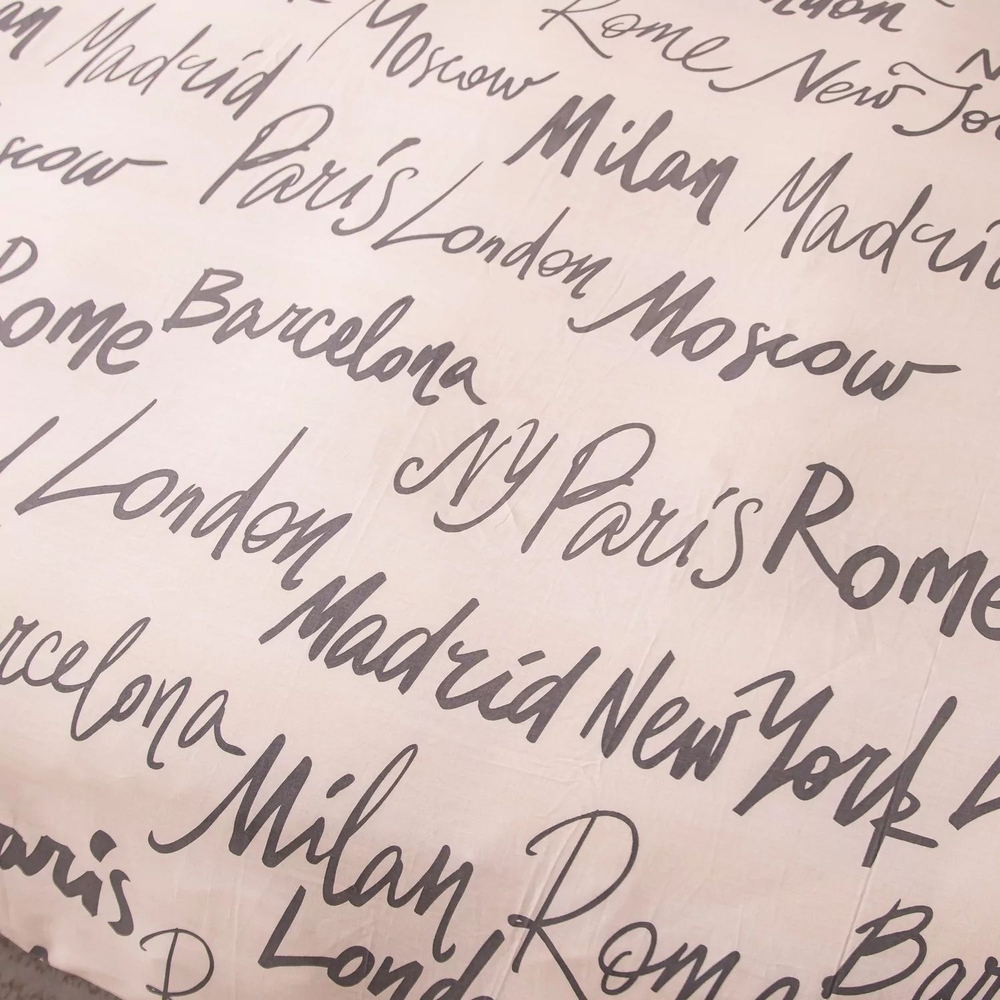 Madrid Moscow Rome New Yo
scow Paris London Milan Madrid
Rome Barcelona Moscow
London NY Paris Rome
rcelona Madrid New York
aris Milan Rome Bar
Lond